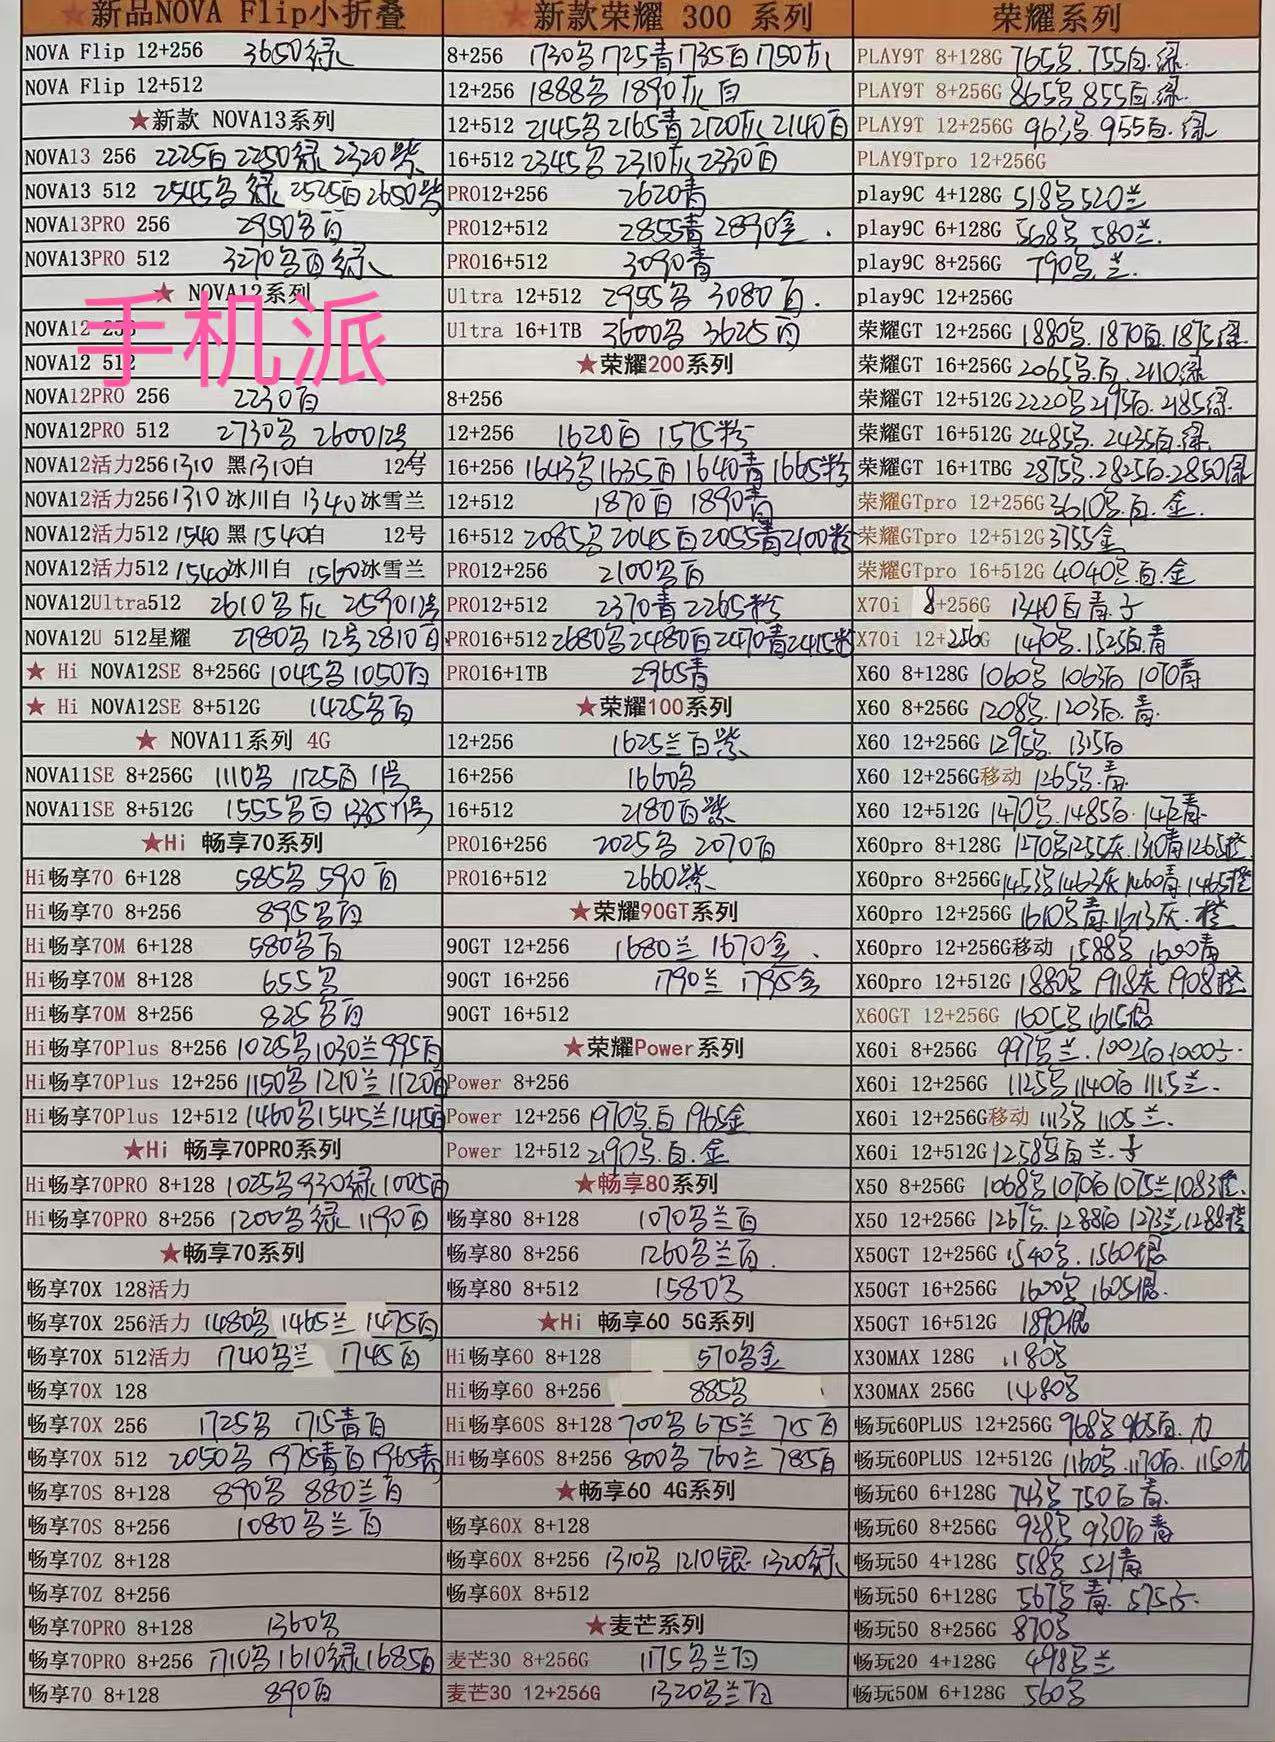 ★新品NOVA Flip小折叠
NOVA Flip 12+256 3650绿
NOVA Flip 12+512
★新款 NOVA13系列
NOVA13 256 2225白 2250绿 2320紫
NOVA13 512 2545名 绿 2525白 2650紫
NOVA13PRO 256 2950名白
NOVA13PRO 512 3270名白绿
★ NOVA12系列
手机派
NOVA12 256
NOVA12 512
NOVA12PRO 256 2230白
NOVA12PRO 512 2730名 2600 12号
NOVA12活力256 1310 黑 1310白 12号
NOVA12活力256 1310 冰川白 1340 冰雪兰
NOVA12活力512 1540 黑 1540白 12号
NOVA12活力512 1540冰川白 1560冰雪兰
NOVA12Ultra512 2610名灰 2590 12号
NOVA12U 512星耀 2780名 12号 2810白
★ Hi NOVA12SE 8+256G 1045名 1050白
★ Hi NOVA12SE 8+512G 1425名白
★ NOVA11系列 4G
NOVA11SE 8+256G 1110名 1125白 11号
NOVA11SE 8+512G 1555名白 1385 11号
★Hi 畅享70系列
Hi畅享70 6+128 585名 590白
Hi畅享70 8+256 895名白
Hi畅享70M 6+128 580名白
Hi畅享70M 8+128 655名
Hi畅享70M 8+256 825名白
Hi畅享70Plus 8+256 1025名 1030兰 995白
Hi畅享70Plus 12+256 1150名 1210兰 1120白
Hi畅享70Plus 12+512 1460名 1545兰 1415白
★Hi 畅享70PRO系列
Hi畅享70PRO 8+128 1025名 930绿 1005白
Hi畅享70PRO 8+256 1200名绿 1190白
★畅享70系列
畅享70X 128活力
畅享70X 256活力 1480名 1465兰 1475白
畅享70X 512活力 1740名兰 1745白
畅享70X 128
畅享70X 256 1725名 1715青白
畅享70X 512 2050名 1975青白 1965青
畅享70S 8+128 890名 880兰白
畅享70S 8+256 1080名兰白
畅享70Z 8+128
畅享70Z 8+256
畅享70PRO 8+128 1360名
畅享70PRO 8+256 1710名 1610绿 1685白
畅享70 8+128 890白
★新款荣耀 300 系列
8+256 1730名 1725青 1735白 1750灰
12+256 1888名 1890灰 白
12+512 2145名 2165青 2120灰 2140白
16+512 2345名 2310灰 2330白
PRO12+256 2620青
PRO12+512 2855青 2890金
PRO16+512 3090青
Ultra 12+512 2955名 3080白
Ultra 16+1TB 3600名 3625白
★荣耀200系列
8+256
12+256 1620白 1575粉
16+256 1643名 1635白 1640青 1665粉
12+512 1870白 1890青
16+512 2085名 2045白 2055青 2100粉
PRO12+256 2100名白
PRO12+512 2370青 2265粉
PRO16+512 2680名 2480白 2470青 2415粉
PRO16+1TB 2965青
★荣耀100系列
12+256 1625兰白紫
16+256 1660名
16+512 2180白紫
PRO16+256 2025名 2070白
PRO16+512 2660紫
★荣耀90GT系列
90GT 12+256 1680兰 1670金
90GT 16+256 1790兰 1795金
90GT 16+512
★荣耀Power系列
Power 8+256
Power 12+256 1970名.白 1965金
Power 12+512 2190名.白.金
★畅享80系列
畅享80 8+128 1070名兰白
畅享80 8+256 1260名兰白
畅享80 8+512 1580名
★Hi 畅享60 5G系列
Hi畅享60 8+128 570名金
Hi畅享60 8+256 885名
Hi畅享60S 8+128 700名 675兰 715白
Hi畅享60S 8+256 800名 760兰 785白
★畅享60 4G系列
畅享60X 8+128
畅享60X 8+256 1310名 1210银 1320绿
畅享60X 8+512
★麦芒系列
麦芒30 8+256G 1175名兰白
麦芒30 12+256G 1320名兰白
荣耀系列
PLAY9T 8+128G 765名.755白.绿
PLAY9T 8+256G 865名 855白.绿
PLAY9T 12+256G 963名 955白.绿
PLAY9Tpro 12+256G
play9C 4+128G 518名 520兰
play9C 6+128G 568名 580兰
play9C 8+256G 790名兰
play9C 12+256G
荣耀GT 12+256G 1880名.1870白.1875绿
荣耀GT 16+256G 2065名.白.2110绿
荣耀GT 12+512G 2220名 2195白.2185绿
荣耀GT 16+512G 2485名.2435白.绿
荣耀GT 16+1TBG 2875名.2825白.2850绿
荣耀GTpro 12+256G 3610名.白.金
荣耀GTpro 12+512G 3755金
荣耀GTpro 16+512G 4040名.白.金
X70i 8+256G 1340白青
X70i 12+256G 1470名.1525白.青
X60 8+128G 1060名 1063白 1070青
X60 8+256G 1208名.1203白.青
X60 12+256G 1295名 1315白
X60 12+256G移动 1265名.青
X60 12+512G 1470名.1485白.1472青
X60pro 8+128G 1270名 1255灰.1310青 1265橙
X60pro 8+256G 1453名 1463灰 1460青 1465橙
X60pro 12+256G 1610名青 1613灰.橙
X60pro 12+256G移动 1588名 1600青
X60pro 12+512G 1880名 1918灰 1908橙
X60GT 12+256G 1605名 1615银
X60i 8+256G 997名兰.1002白 1000
X60i 12+256G 1125名 1140白 1115兰
X60i 12+256G移动 1113名 1105兰
X60i 12+512G 1258名白兰
X50 8+256G 1068名 1070白 1075兰 1083橙
X50 12+256G 1267名.1288白 1273兰 1288橙
X50GT 12+256G 1540名.1560银
X50GT 16+256G 1600名 1605银
X50GT 16+512G 1890银
X30MAX 128G 1180名
X30MAX 256G 1480名
畅玩60PLUS 12+256G 968名 965白
畅玩60PLUS 12+512G 1160名.1170白.1150
畅玩60 6+128G 743名 750白青
畅玩60 8+256G 928名 930白青
畅玩50 4+128G 518名 521青
畅玩50 6+128G 567名青 575
畅玩50 8+256G 870名
畅玩20 4+128G 498名兰
畅玩50M 6+128G 560名